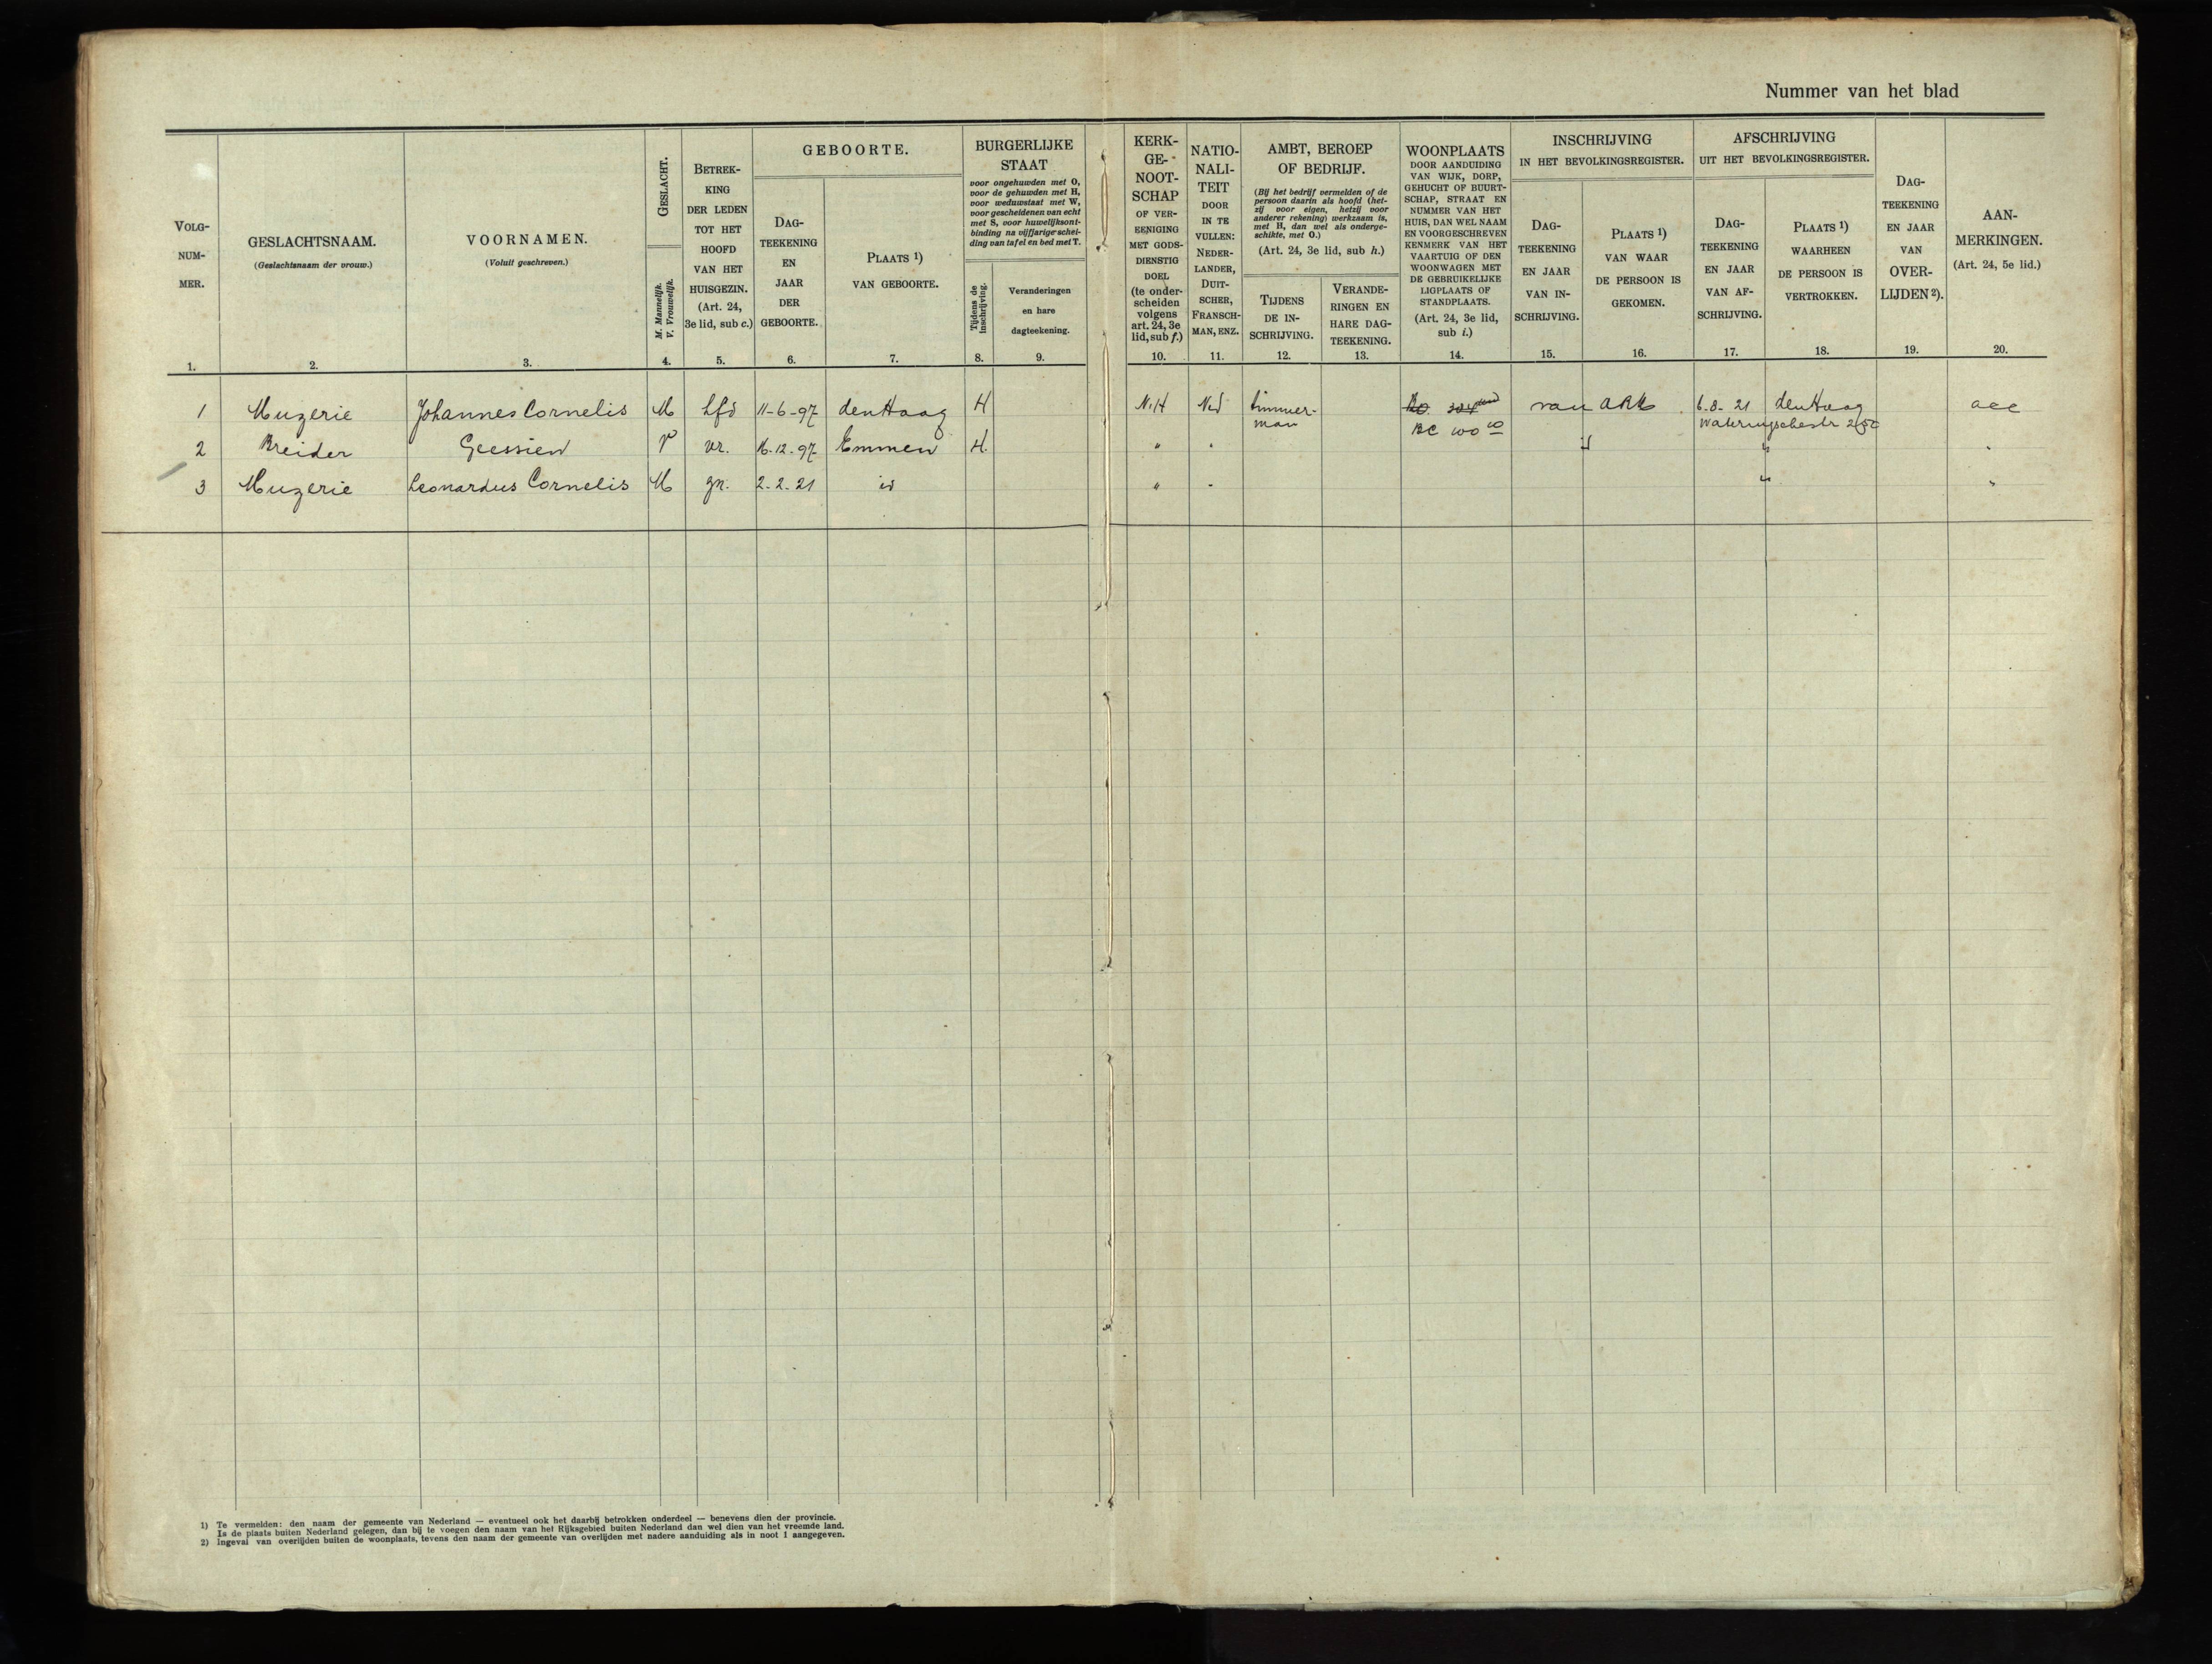 Nummer van het blad
VOLG-
NUM-
MER.
1.
GESLACHTSNAAM.
(Geslachtsnaam der vrouw.)
2.
VOORNAMEN.
(Voluit geschreven.)
3.
GESLACHT.
M. Mannelijk.
V. Vrouwelijk.
4.
BETREK-
KING
DER LEDEN
TOT HET
HOOFD
VAN HET
HUISGEZIN.
(Art. 24,
3e lid, sub c.)
5.
GEBOORTE.
DAG-
TEEKENING
EN
JAAR
DER
GEBOORTE.
6.
PLAATS 1)
VAN GEBOORTE.
7.
BURGERLIJKE
STAAT
voor ongehuwden met O,
voor de gehuwden met H,
voor weduwstaat met W,
voor gescheidenen van echt
met S, voor huwelijksont-
binding na vijfjarige schei-
ding van tafel en bed met T.
Tijdens de
inschrijving.
8.
Veranderingen
en hare
dagteekening.
9.
KERK-
GE-
NOOT-
SCHAP
OF VER-
EENIGING
MET GODS-
DIENSTIG
DOEL
(te onder-
scheiden
volgens
art. 24, 3e
lid, sub f.)
10.
NATIO-
NALI-
TEIT
DOOR
IN TE
VULLEN:
NEDER-
LANDER,
DUIT-
SCHER,
FRANSCH-
MAN, ENZ.
11.
AMBT, BEROEP
OF BEDRIJF.
(Bij het bedrijf vermelden of de
persoon daarin als hoofd (het-
zij voor eigen, hetzij voor
anderer rekening) werkzaam is,
met H, dan wel als onderge-
schikte, met O.)
(Art. 24, 3e lid, sub h.)
TIJDENS
DE IN-
SCHRIJVING.
12.
VERANDE-
RINGEN EN
HARE DAG-
TEEKENING.
13.
WOONPLAATS
DOOR AANDUIDING
VAN WIJK, DORP,
GEHUCHT OF BUURT-
SCHAP, STRAAT EN
NUMMER VAN HET
HUIS, DAN WEL NAAM
EN VOORGESCHREVEN
KENMERK VAN HET
VAARTUIG OF DEN
WOONWAGEN MET
DE GEBRUIKELIJKE
LIGPLAATS OF
STANDPLAATS.
(Art. 24, 3e lid,
sub i.)
14.
INSCHRIJVING
IN HET BEVOLKINGSREGISTER.
DAG-
TEEKENING
EN JAAR
VAN IN-
SCHRIJVING.
15.
PLAATS 1)
VAN WAAR
DE PERSOON IS
GEKOMEN.
16.
AFSCHRIJVING
UIT HET BEVOLKINGSREGISTER.
DAG-
TEEKENING
EN JAAR
VAN AF-
SCHRIJVING.
17.
PLAATS 1)
WAARHEEN
DE PERSOON IS
VERTROKKEN.
18.
DAG-
TEEKENING
EN JAAR
VAN
OVER-
LIJDEN 2).
19.
AAN-
MERKINGEN.
(Art. 24, 5e lid.)
20.
1 Muzerie Johannes Cornelis M hfd 11-6-97 den Haag H N.H Ned timmer- van ABR 6.8.21 den Haag acc
man BC 100
2 Breider Geessien V vr. 16-12-97 Emmen H. " " " "
3 Muzerie Leonardus Cornelis M zn. 2-2-21 id " " " "
1) Te vermelden: den naam der gemeente van Nederland — eventueel ook het daarbij betrokken onderdeel — benevens dien der provincie.
Is de plaats buiten Nederland gelegen, dan bij te voegen den naam van het Rijksgebied buiten Nederland dan wel dien van het vreemde land.
2) Ingeval van overlijden buiten de woonplaats, tevens den naam der gemeente van overlijden met nadere aanduiding als in noot 1 aangegeven.